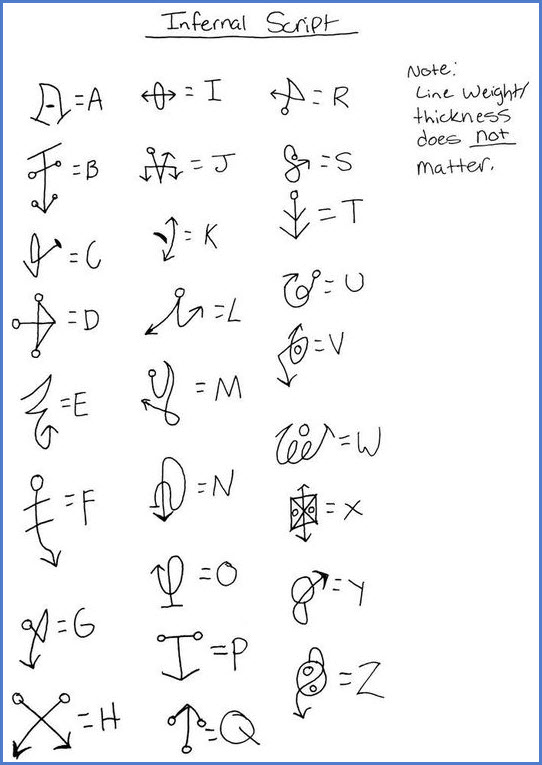 Infernal Script
=A
=B
=C
=D
=E
=F
=G
=H
=I
=J
=K
=L
=M
=N
=O
=P
=Q
=R
=S
=T
=U
=V
=W
=X
=Y
=Z
Note:
Line Weight/
thickness
does not
matter.